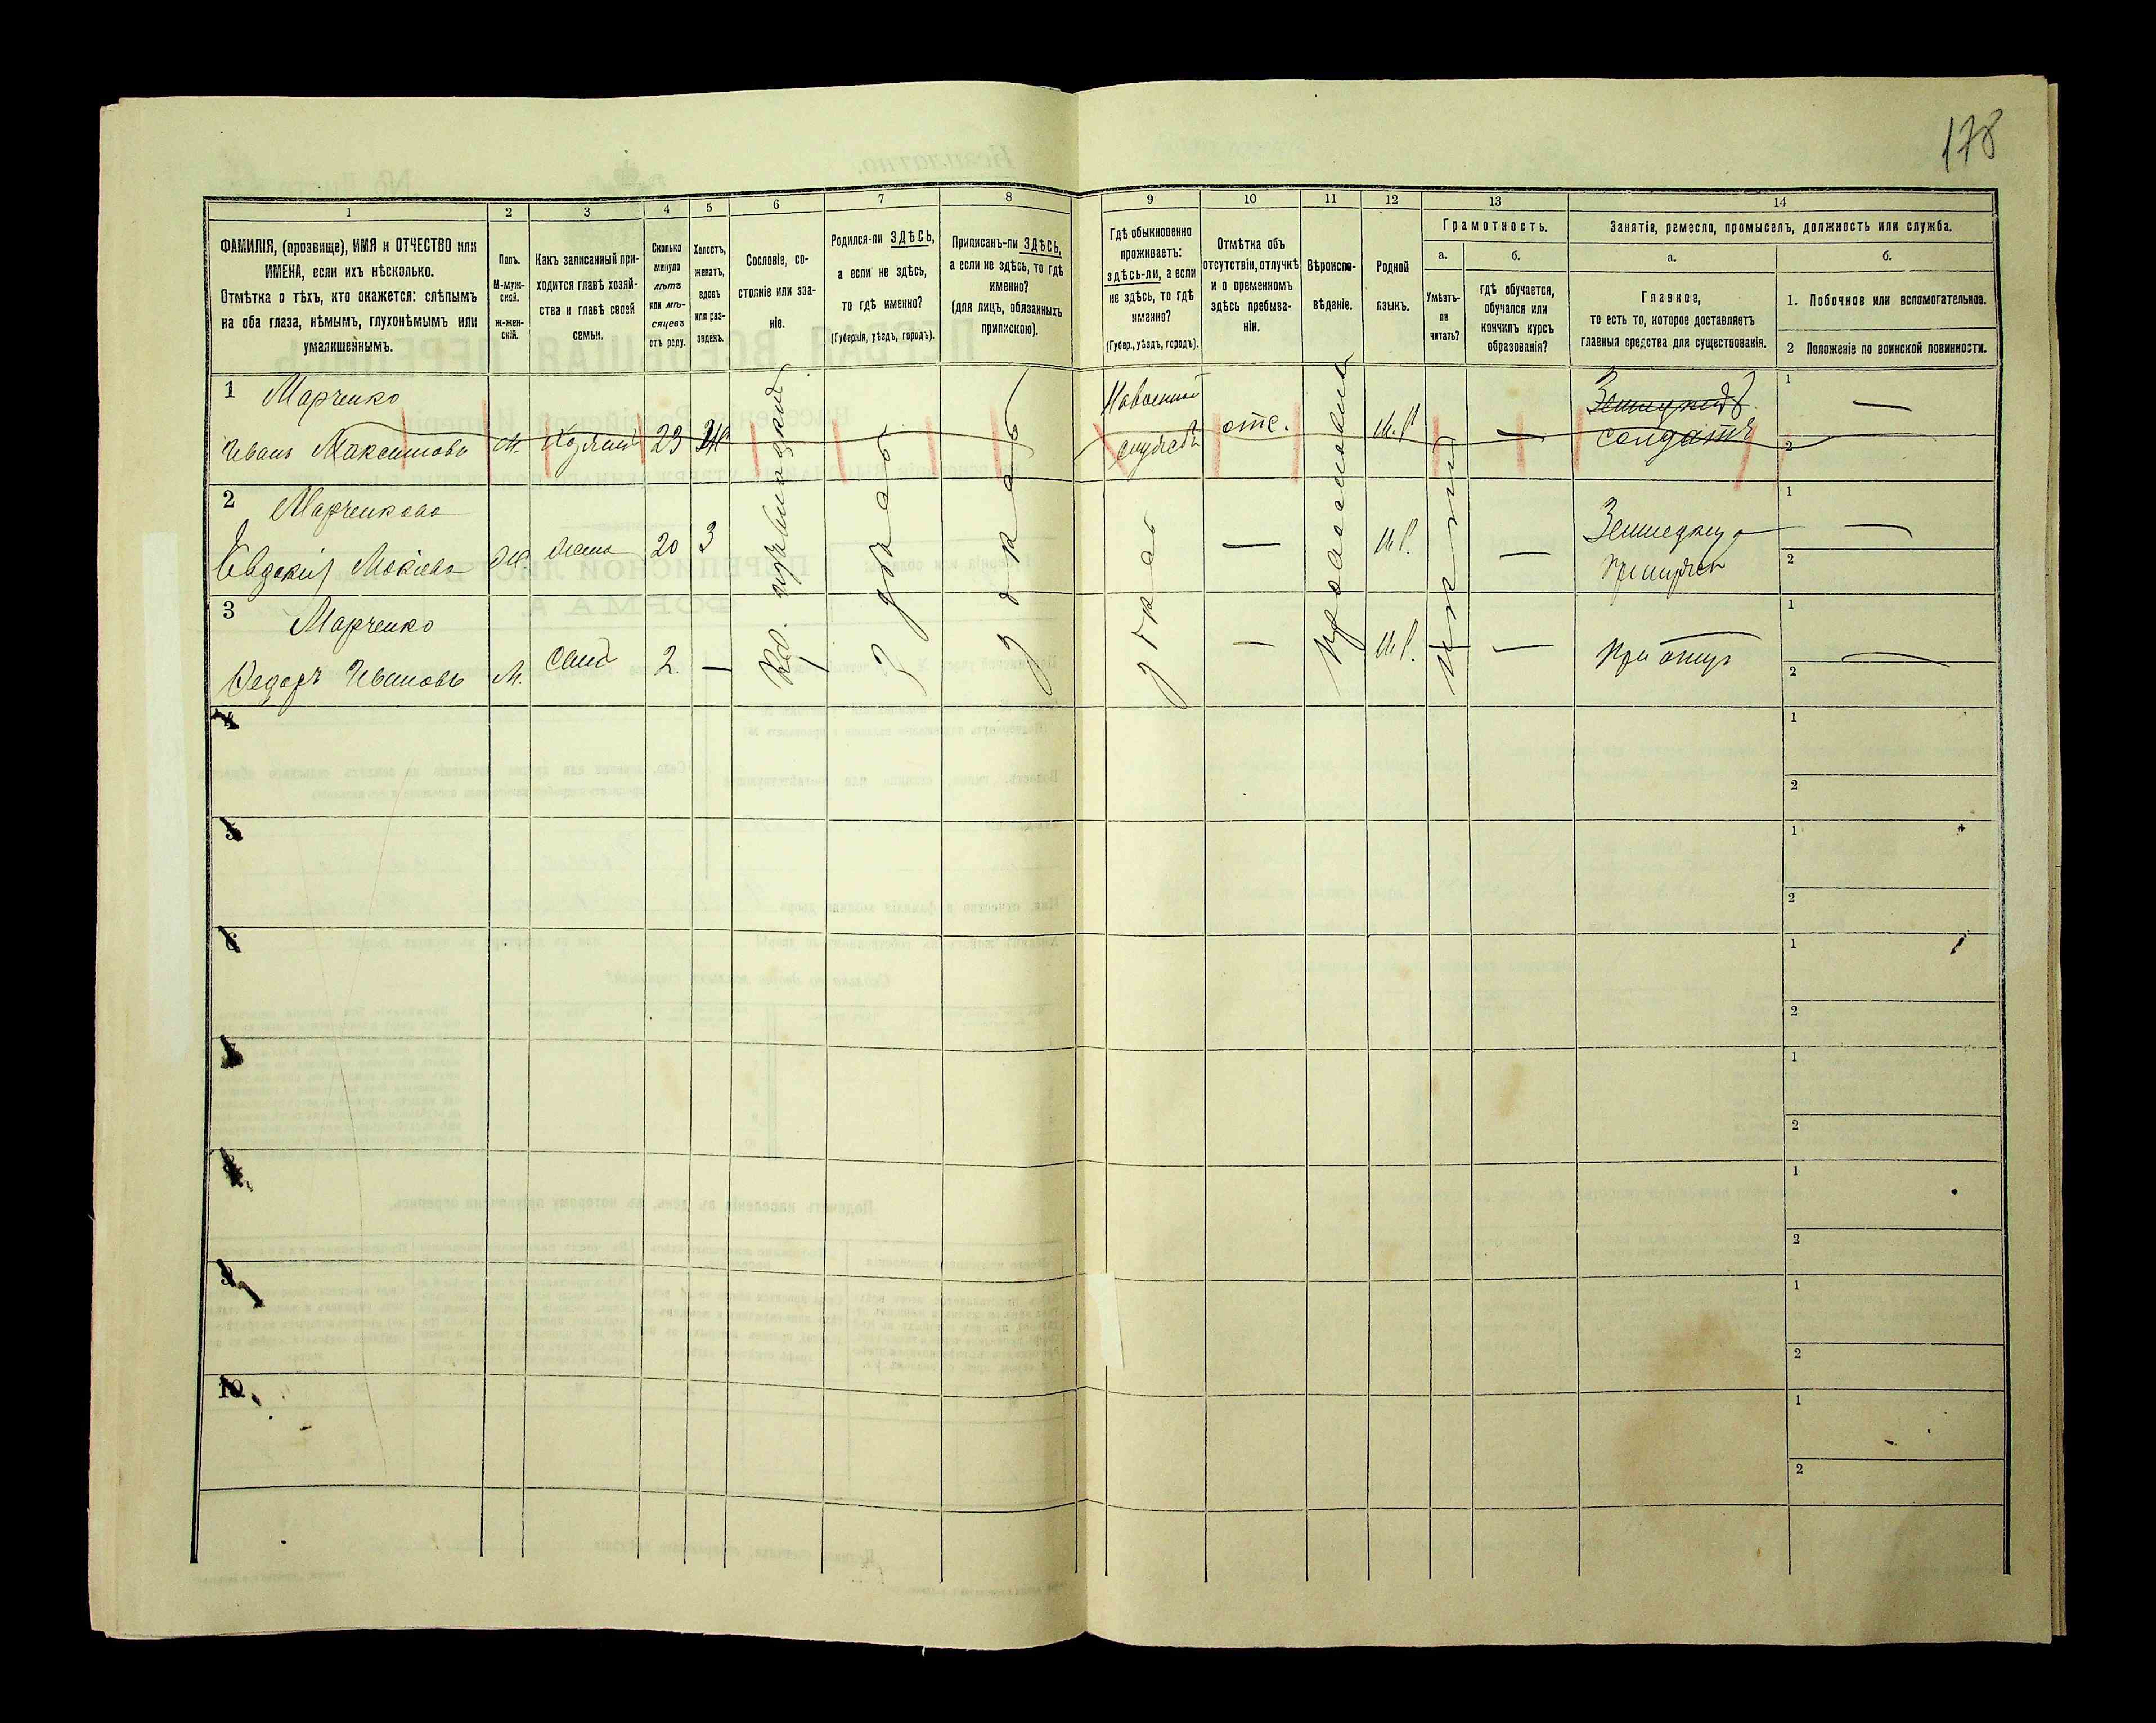 178
1
2
3
4
5
6
7
8
9
10
11
12
13
14
ФАМИЛІЯ, (прозвище), ИМЯ и ОТЧЕСТВО или
ИМЕНА, если ихъ нѣсколько.
Отмѣтка о тѣхъ, кто окажется: слѣпымъ
на оба глаза, нѣмымъ, глухонѣмымъ или
умалишеннымъ.
Полъ.
М-муж-
ской.
Ж-жен-
скій.
Какъ записанный при-
ходится главѣ хозяй-
ства и главѣ своей
семьи.
Сколько
минуло
лѣтъ
или мѣ-
сяцевъ
отъ роду.
Холостъ,
женатъ,
вдовъ
или раз-
веденъ.
Сословіе, со-
стояніе или зва-
ніе.
Родился-ли ЗДѢСЬ,
а если не здѣсь,
то гдѣ именно?
(Губернія, уѣздъ, городъ).
Приписанъ-ли ЗДѢСЬ,
а если не здѣсь, то гдѣ
именно?
(для лицъ, обязанныхъ
припискою).
Гдѣ обыкновенно
проживаетъ:
здѣсь-ли, а если
не здѣсь, то гдѣ
именно?
(Губер., уѣздъ, городъ).
Отмѣтка объ
отсутствіи, отлучкѣ
и о временномъ
здѣсь пребыва-
ніи.
Вѣроиспо-
вѣданіе.
Родной
языкъ.
Грамотность.
а.
б.
Умѣетъ-
ли
читать?
гдѣ обучается,
обучался или
кончилъ курсъ
образованія?
Занятіе, ремесло, промыселъ, должность или служба.
а.
б.
Главное,
то есть то, которое доставляетъ
главныя средства для существованія.
1. Побочное или вспомогательное.
2 Положеніе по воинской повинности.
1 Марченко
Иванъ Максимовъ М. Хозяинъ 23 Ж
отс. М.Р. — солдатъ
1 —
2
2 Марченкова
Евдокія Мокіева Ж. жена 20 З
— М.Р. —
1 —
2
3 Марченко
Федоръ Ивановъ М. сынъ 2. —
— М.Р. — При отцѣ
1 —
2
здѣсь
здѣсь
Православный
4
1
2
5
1
2
6
1
2
7
1
2
8
1
2
9
1
2
10
1
2